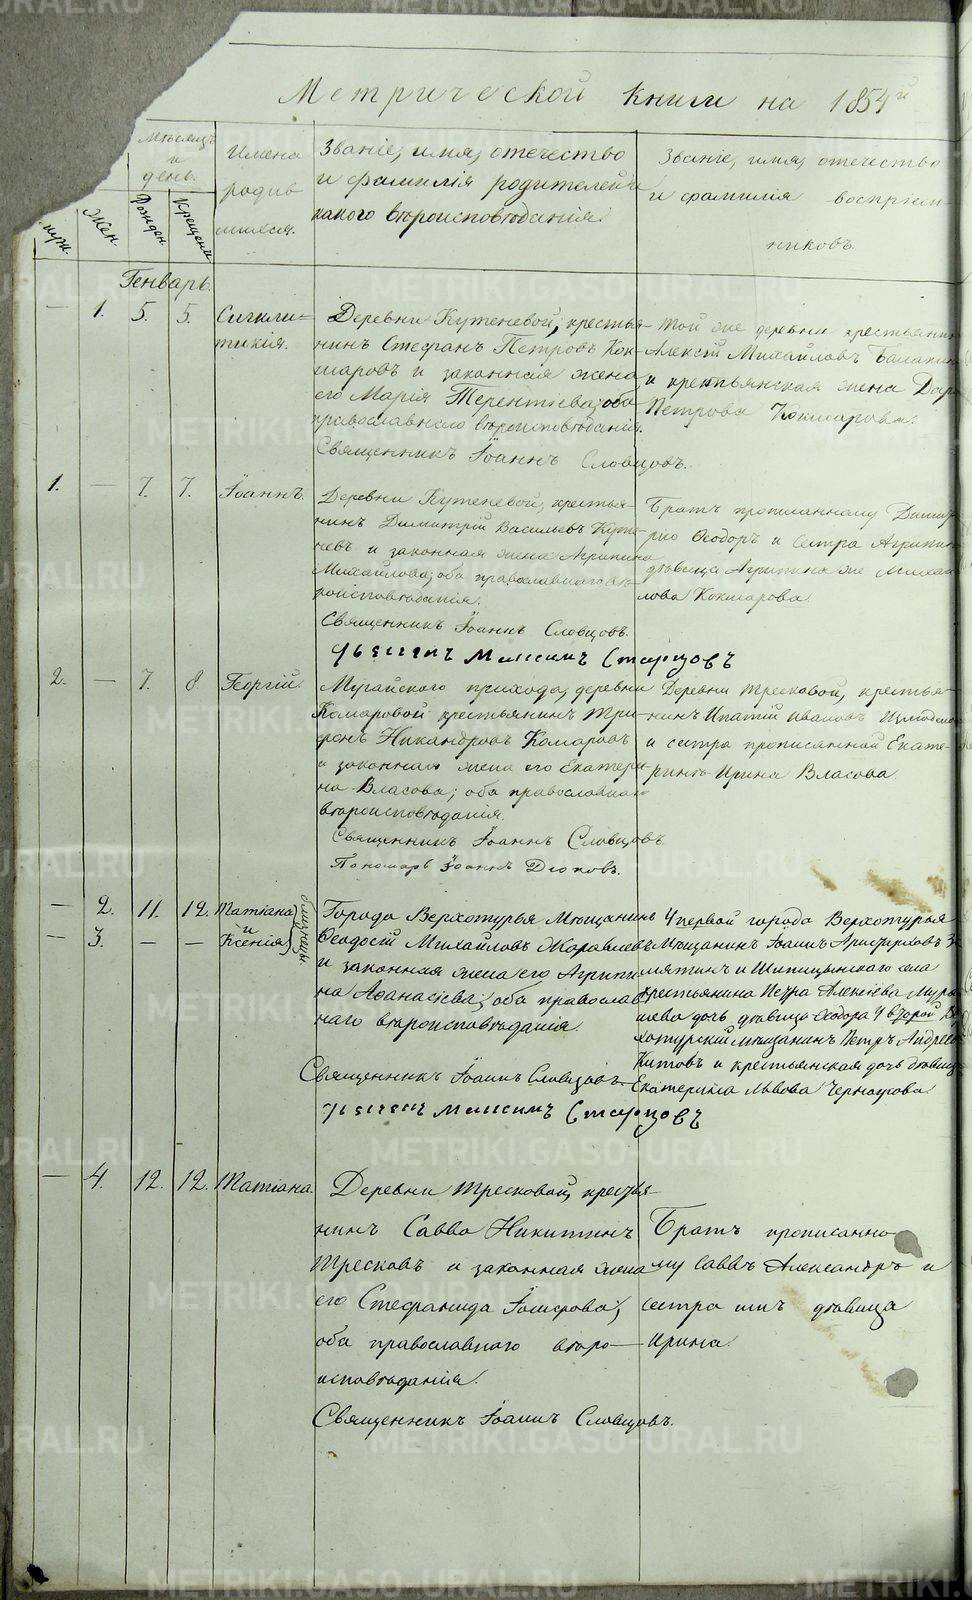 Метрической Книги на 1854й
Мѣсяцъ и день.
Имена родив шихся.
Званіе, имя, отечество
и фамилія родителей и
какого вѣроисповѣданія.
Званіе, имя, отечество
и фамилія воспріем
никовъ.
муж.
Жен.
Рожден.
Крещенія
Генварь.
— 1. 5. 5. Сигкли=
тикія.
Деревни Кутеневой, крестья
нинъ Стефанъ Петровъ Кок
шаровъ и законная жена
его Марія Терентіева; оба
православнаго вѣроисповѣданія.
Священникъ Іоаннъ Словцовъ.
Той же деревни крестьянин
Алексій Михайловъ Балакин
и крестьянская жена Дар
Петрова Кокшарова.
1. — 7. 7. Іоаннъ.
Деревни Кутеневой, крестья
нинъ Димитрій Васильевъ Куте
невъ и законная жена Агрипина
Михайлова; оба православнаго вѣ
роисповѣданія.
Священникъ Іоаннъ Словцовъ.
Дьячекъ Максимъ Старцовъ
Братъ прописанному Димит
рію Ѳеодоръ и сестра Агрипин
дѣвица Агрипина же Михай
лова Кокшарова
2. — 7. 8 Георгій.
Мугайского прихода, деревни
Комаровой крестьянинъ Три
фонъ Никандровъ Комаровъ
и законная жена его Екатери
на Власова; оба православнаго
вѣроисповѣданія.
Священникъ Іоаннъ Словцовъ.
Пономарь Іоаннъ Дюковъ.
Деревни Тресковой, крестья
нинъ Ипатій Ивановъ
и сестра прописанной Екате
ринѣ Ирина Власова
— 2. 11. 12. Татіана
и
— 3. — — Ксенія
близнецы
Города Верхотурья Мѣщанинъ
Ѳеодосій Михайловъ Журавлевъ
и законная жена его Агрипи
на Аѳанасіева; оба православ
наго вѣроисповѣданія.
Священникъ Іоаннъ Словцовъ
Дьячекъ Максимъ Старцовъ
У первой города Верхотурья
Мѣщанинъ Іоаннъ За
мятинъ и Шипицынскаго села
крестьянина Петра Алексіева Мура
шева дочь дѣвица Ѳеодора У второй Вер
хотурскій мѣщанинъ Петръ Андреев
Китовъ и крестьянская дочь дѣвица
Екатерина Львова Черноухова
— 4. 12. 12. Татіана.
Деревни Тресковой, крестья
нинъ Савва Никитинъ
Тресковъ и законная жена
его Стефанида оба православнаго вѣро
исповѣданія.
Священникъ Іоаннъ Словцовъ.
Братъ прописанно
му Саввѣ Александръ и
сестра ихъ дѣвица
Ирина.
METRIKI.GASO-URAL.RU